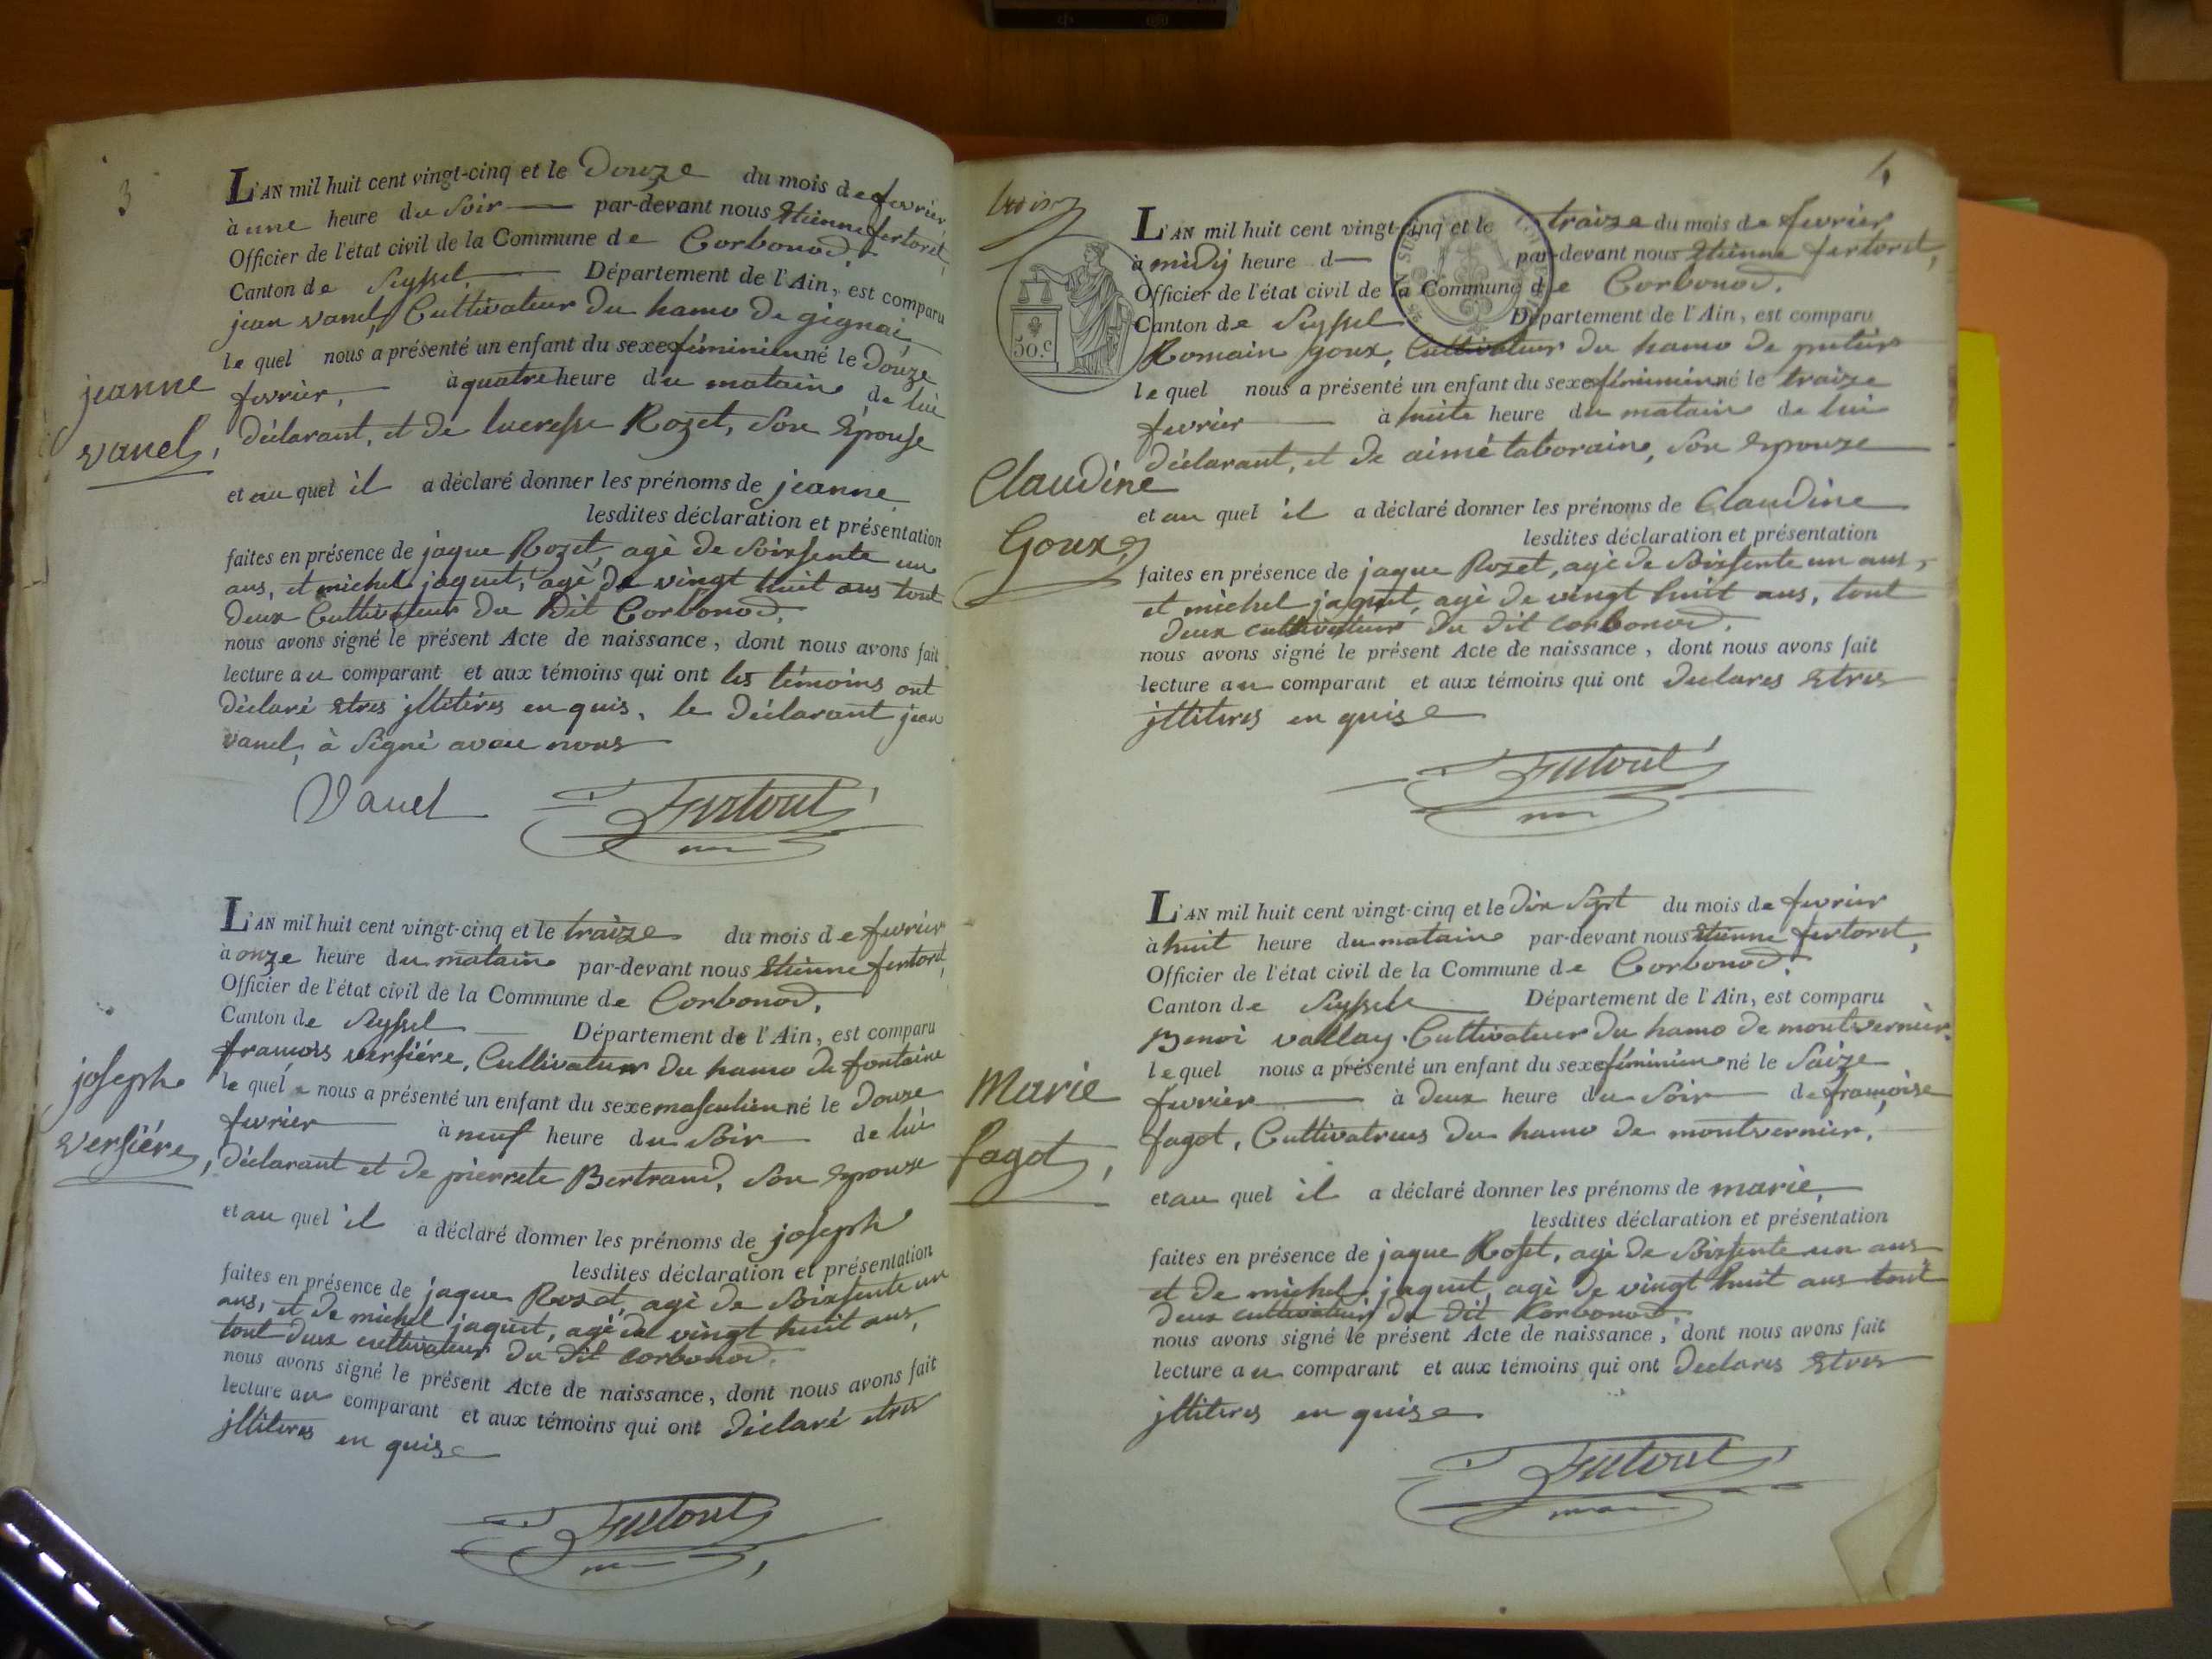 3
L'AN mil huit cent vingt-cinq et le Douze du mois de fevrier
à une heure du soir par-devant nous Etienne fertoret,
Officier de l'état civil de la Commune de Corbonod.
Canton de Seyssel, Département de l'Ain, est comparu
jean vanel, Cultivateur du hamo de gignai,
le quel nous a présenté un enfant du sexe féminien né le Douze
fevrier, à quatre heure du matain de lui
déclarant, et de lucresse Rozet, son Epouse
jeanne
vanel,
et au quel il a déclaré donner les prénoms de jeanne
lesdites déclaration et présentation
faites en présence de jaque Rozet, agè de Soixsente un
ans, et michel jaquet, agè de vingt huit ans tout
deux Cultivateur du Dit Corbonod,
nous avons signé le présent Acte de naissance, dont nous avons fait
lecture au comparant et aux témoins qui ont les témoins ont
dèclaré Etres jllitéres en quis, le déclarant jean
vanel, à Signé avau nous
Vanel Fertoret
L'AN mil huit cent vingt-cinq et le traize du mois de fevrier
à onze heure du matain par-devant nous Etienne fertoret,
Officier de l'état civil de la Commune de Corbonod,
Canton de Seyssel Département de l'Ain, est comparu
framois versiére, Cultivateur du hamo de fontaine
le quel nous a présenté un enfant du sexe masculien né le Douze
fevrier à neuf heure du Soir de lui
déclarant et de pierrete Bertrand, son Epouse
joseph
versiére,
et au quel il a déclaré donner les prénoms de joseph
lesdites déclaration et présentation
faites en présence de jaque Rozet, agè de Soixsente un
ans, et de michel jaquet, agè de vingt huit ans,
tout deux cultivateur du dit corbonod.
nous avons signé le présent Acte de naissance, dont nous avons fait
lecture au comparant et aux témoins qui ont déclaré etres
jllitéres en quise
Fertoret
4
50.c
L'AN mil huit cent vingt-cinq et le traize du mois de fevrier
à midy heure d par-devant nous Etienne fertoret,
Officier de l'état civil de la Commune de Corbonod.
Canton de Seyssel Département de l'Ain, est comparu
Romain goux, Cultivateur du hamo de
le quel nous a présenté un enfant du sexe féminien né le traize
fevrier à huite heure du matain de lui
déclarant, et de aimé taborain, son Epouze
Claudine
Goux,
et au quel il a déclaré donner les prénoms de Claudine
lesdites déclaration et présentation
faites en présence de jaque Rozet, agè de Soixsente un ans,
et michel jaquet, agè de vingt huit ans, tout
deux cultivateur du dit corbonod.
nous avons signé le présent Acte de naissance, dont nous avons fait
lecture au comparant et aux témoins qui ont declares Etres
jllitéres en quise
Fertoret
L'AN mil huit cent vingt-cinq et le Dix Sept du mois de fevrier
à huit heure du matain par-devant nous Etienne fertoret,
Officier de l'état civil de la Commune de Corbonod.
Canton de Seyssel Département de l'Ain, est comparu
Benoi vallay. Cultivateur du hamo de montvernier.
le quel nous a présenté un enfant du sexe féminien né le Saize
fevrier à deux heure du Soir de framoise
fagot, Cultivatrius du hamo de montvernier,
Marie
fagot,
et au quel il a déclaré donner les prénoms de marie,
lesdites déclaration et présentation
faites en présence de jaque Roset, agè de Soixsente un ans
et de michel jaquet, agè de vingt huit ans tout
deux cultivateur du dit Corbonod.
nous avons signé le présent Acte de naissance, dont nous avons fait
lecture au comparant et aux témoins qui ont declares Etres
jllitéres en quise
Fertoret